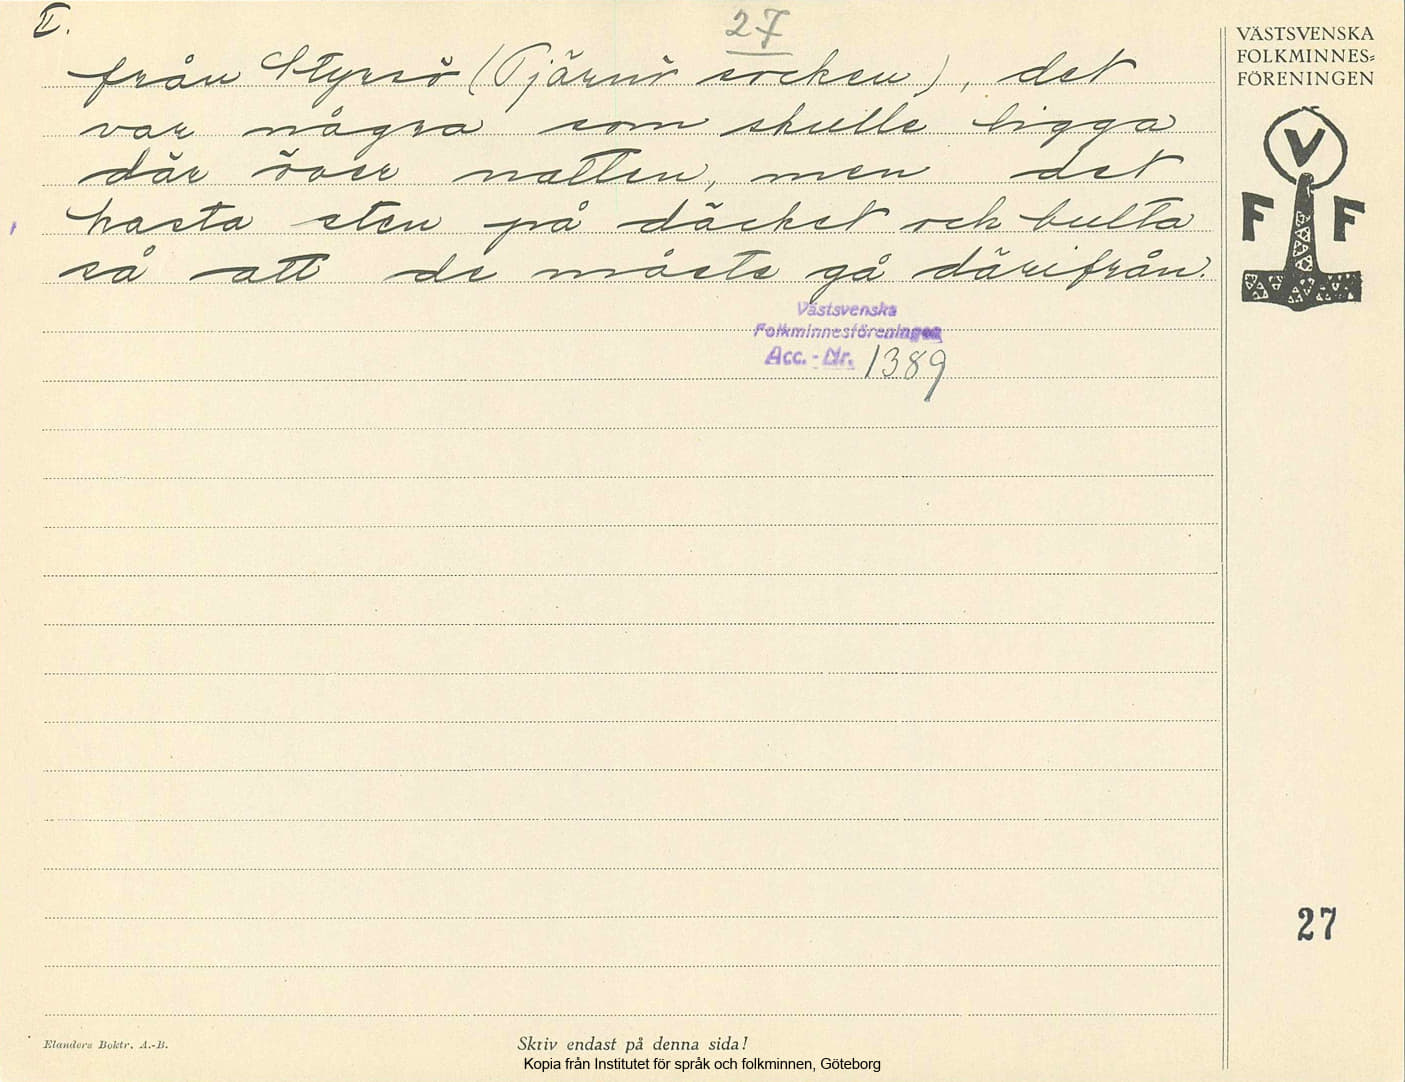 II.
27
från Styrsö (Tjärnö socken), det
var några som skulle ligga
där över natten, men det
kasta sten på däcket och bulta
så att de måste gå därifrån.
Västsvenska
Folkminnesföreningen
Acc. - Nr. 1389
VÄSTSVENSKA
FOLKMINNES=
FÖRENINGEN
V
F F
27
Elanders Boktr. A.-B.
Skriv endast på denna sida!
Kopia från Institutet för språk och folkminnen, Göteborg